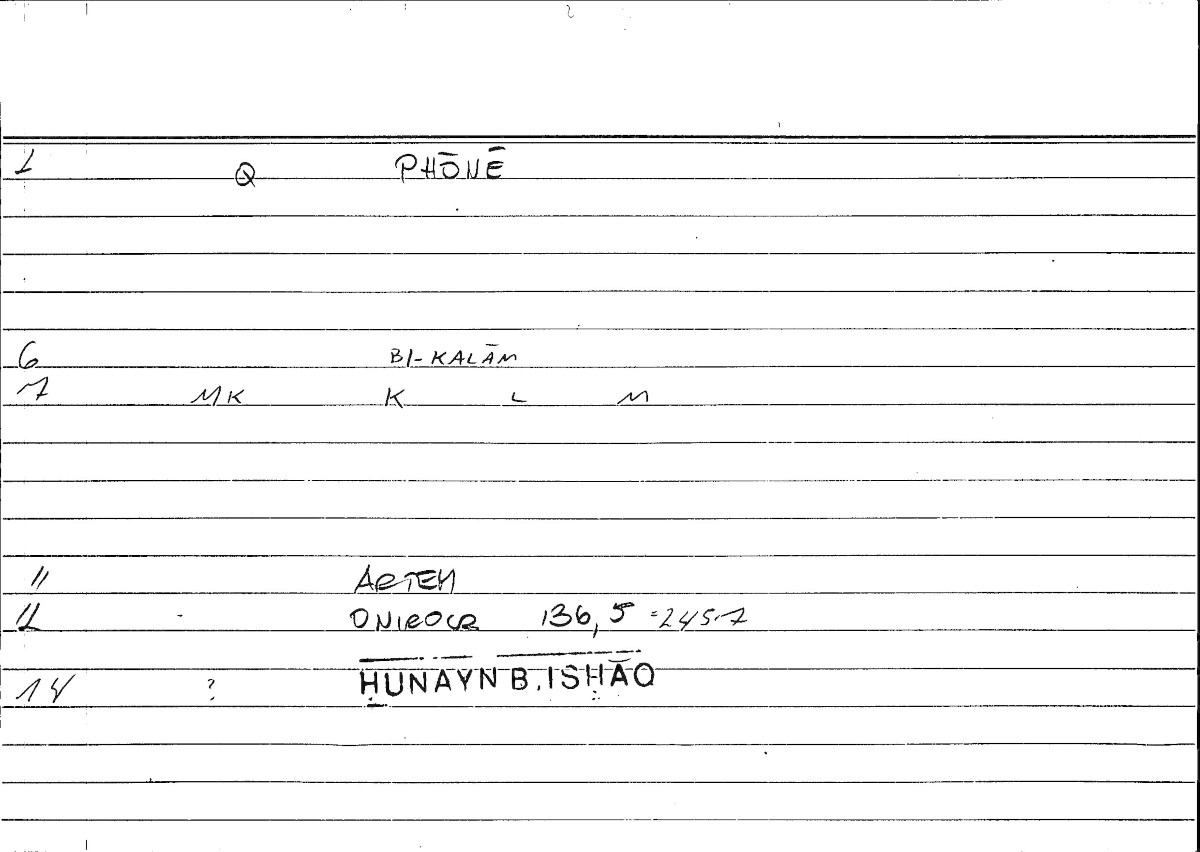 1 Q PHŌNĒ
6 BI-KALĀM
7 MK K L M
11 ARTEM
12 ONIROCR 136,5 =245.7
14 ? ḤUNAYN B. ISḤĀQ